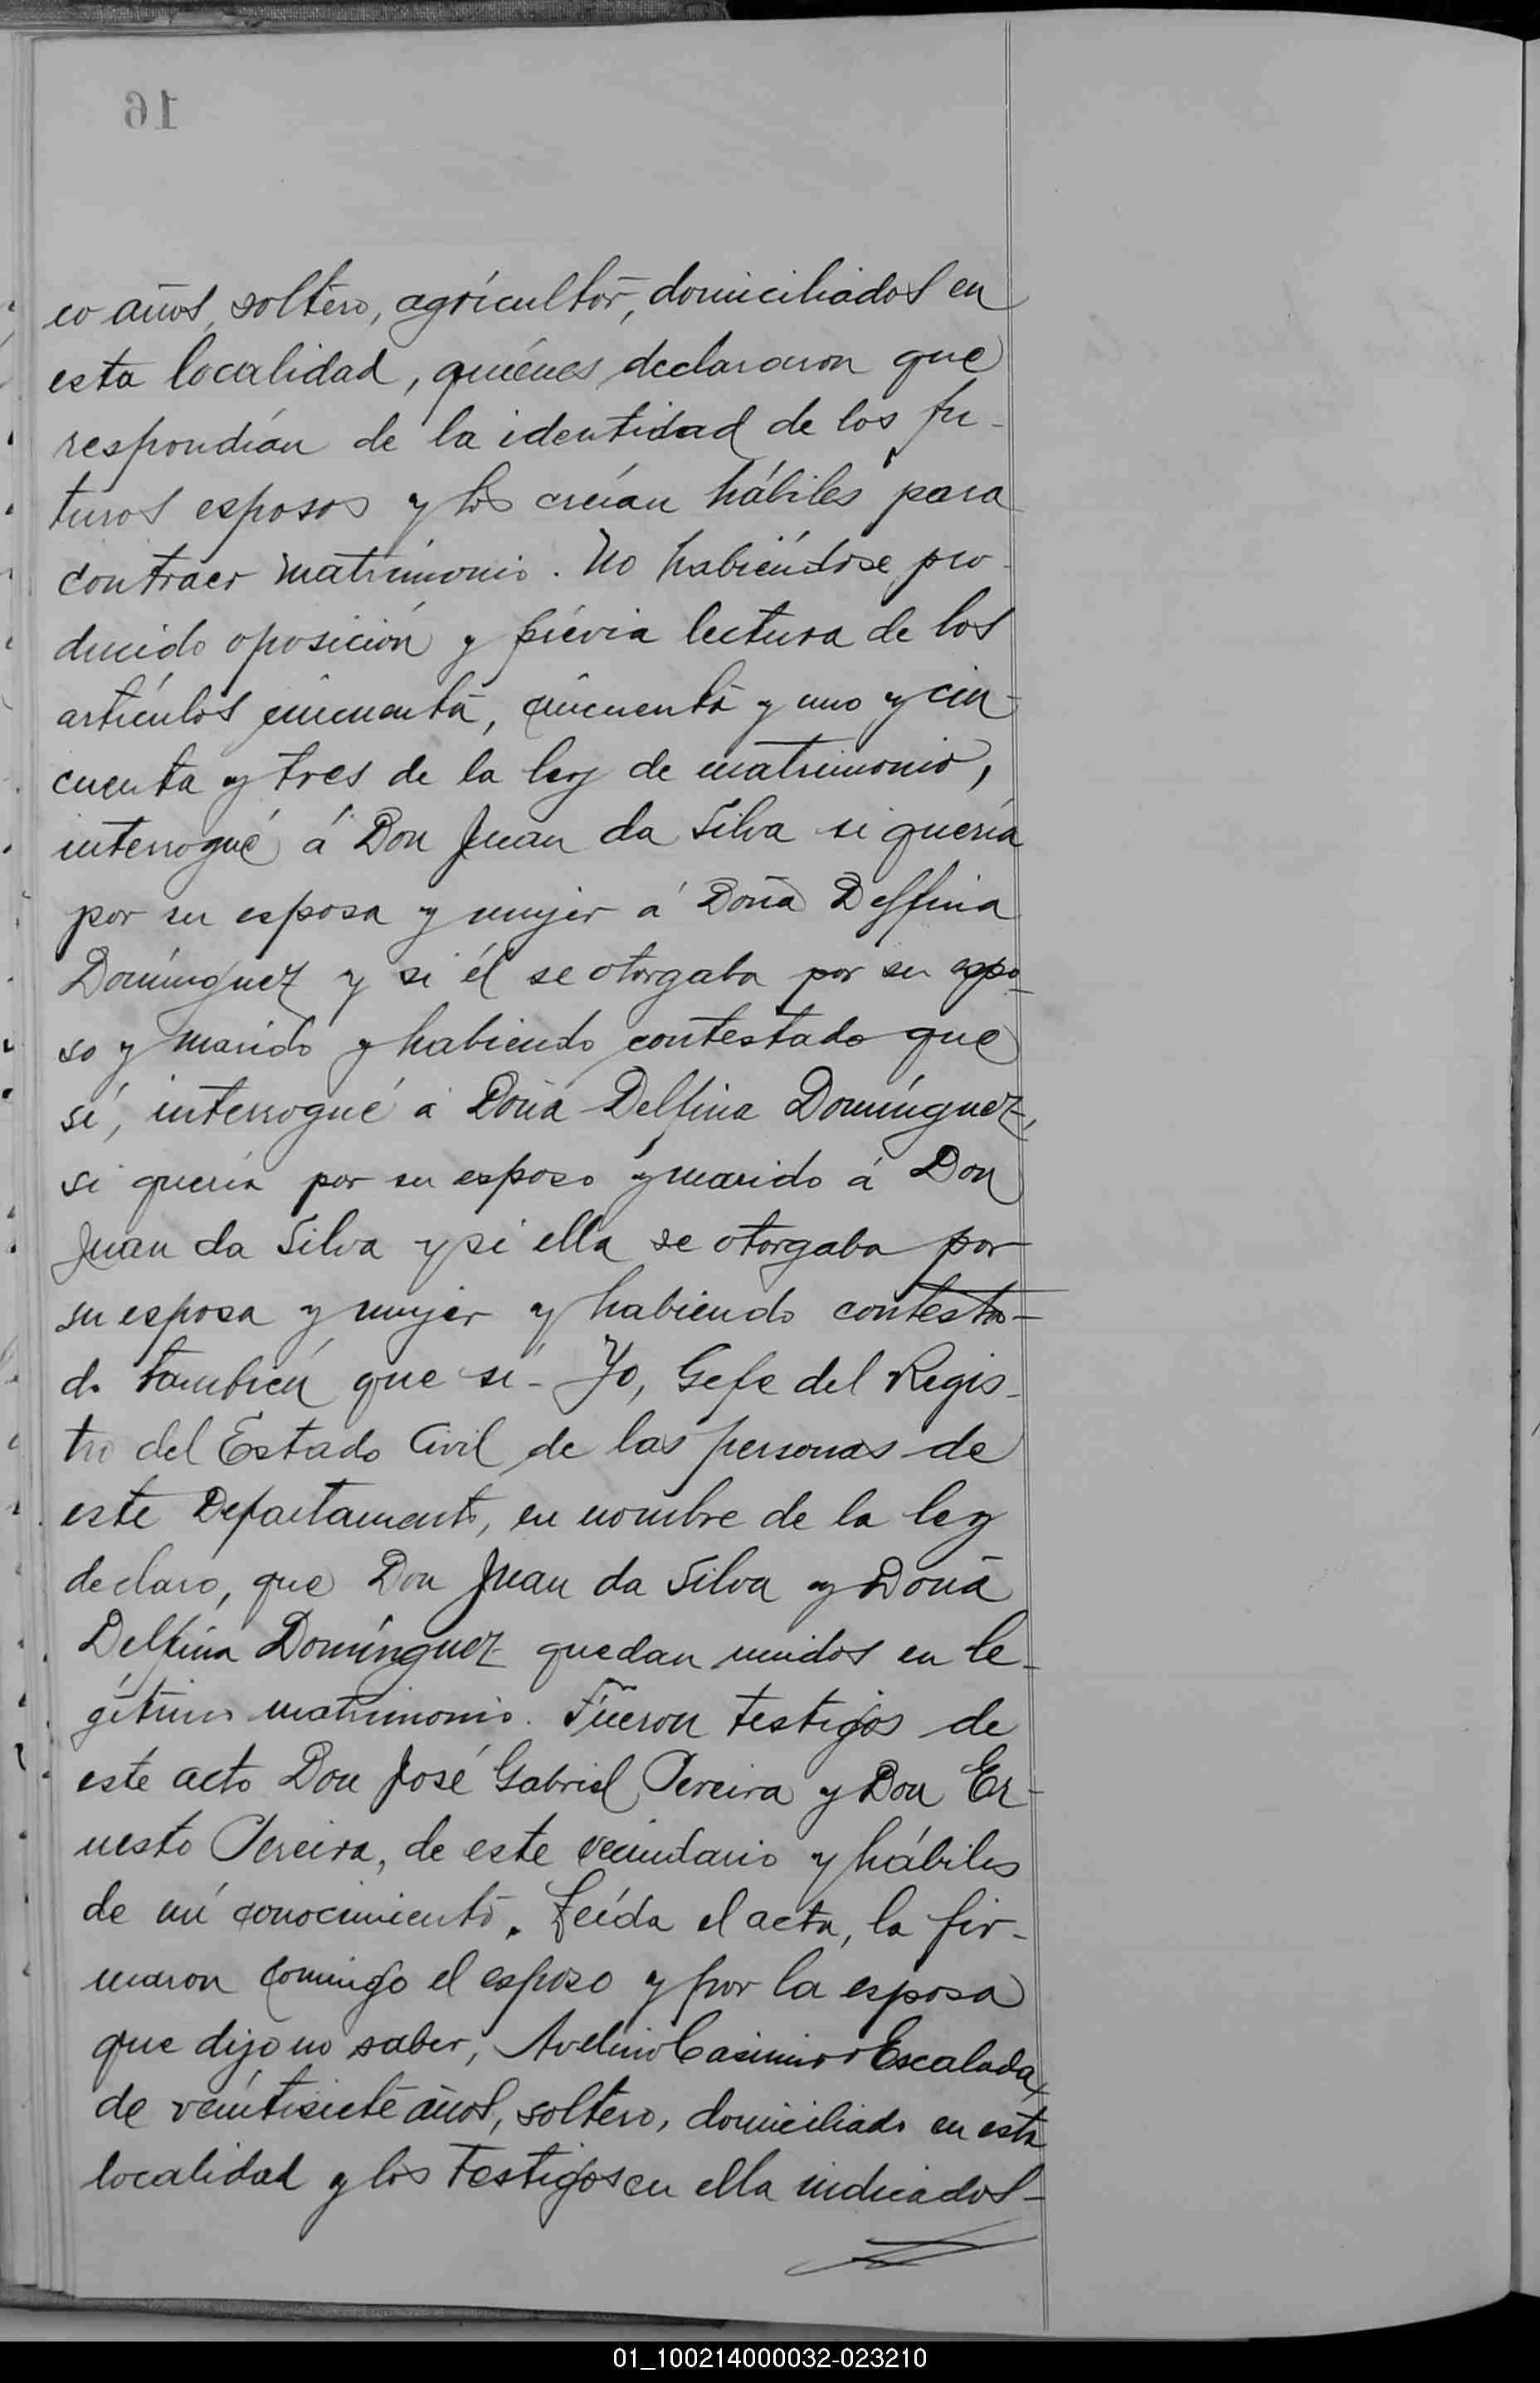 16
co años, soltero, agricultor, domiciliados en
esta localidad, quiénes declararon que
respondían de la identidad de los fu-
turos esposos y los creían hábiles para
contraer matrimonio. No habiéndose pro-
ducido oposición y prévia lectura de los
artículos cincuenta, cincuenta y uno y cin-
cuenta y tres de la ley de matrimonio,
interrogué á Don Juan da Silva si quería
por su esposa y mujer á Doña Delfina
Domínguez y si él se otorgaba por su espo-
so y marido y habiendo contestado que
sí, interrogué á Doña Delfina Domínguez,
si quería por su esposo y marido á Don
Juan da Silva y si ella se otorgaba por
su esposa y mujer y habiendo contesta-
do también que sí - Yo, Gefe del Regis-
tro del Estado Civil de las personas de
este Departamento, en nombre de la ley
declaro, que Don Juan da Silva y Doña
Delfina Domínguez quedan unidos en le-
gítimo matrimonio. Fueron testigos de
este acto Don José Gabriel Pereira y Don Er-
nesto Pereira, de este vecindario y hábiles
de mi conocimiento. Leída el acta, la fir-
maron conmigo el esposo y por la esposa
que dijo no saber, Avelino Casimiro Escalada,
de veintisiete años, soltero, domiciliado en esta
localidad y los testigos en ella indicados-
01_100214000032-023210